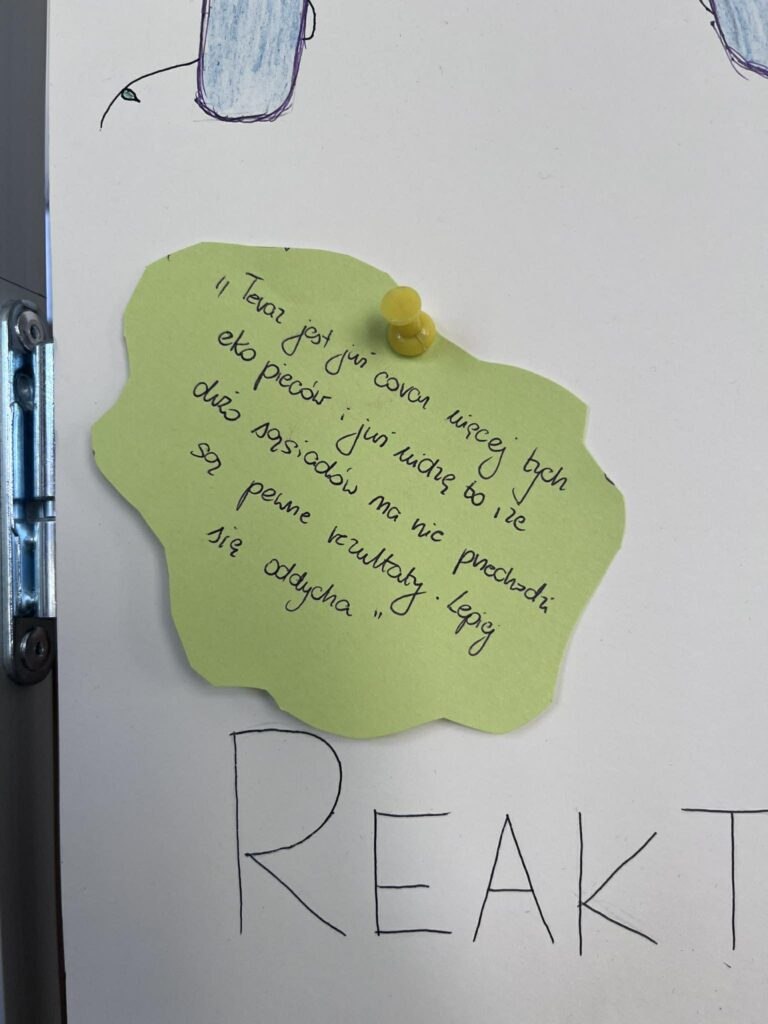 „Teraz jest już coraz więcej tych
eko pieców i już widzę to, że
dużo sąsiadów na nie przechodzi
są pewne rezultaty. Lepiej
się oddycha"
REAKT